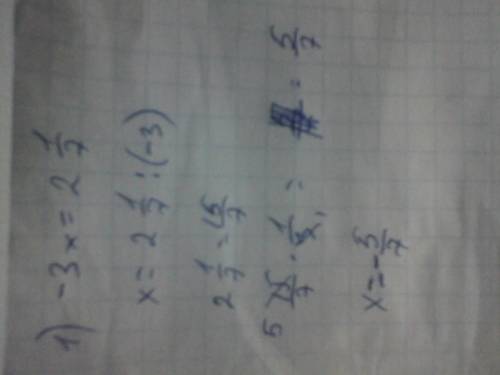 1) -3x = 2 1/7
x = 2 1/7 : (-3)
2 1/7 = 15/7
5 15/7 · 1/3 1 = = 5/7
x = -5/7